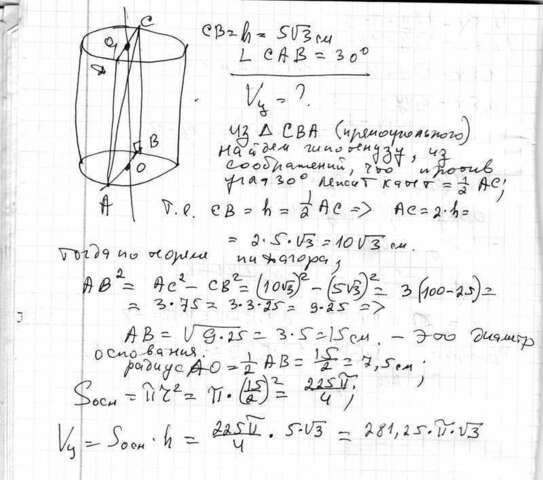 C
O₁
B
O
A
CB = h = 5√3 см
∠ CAB = 30°
Vц = ?
из Δ CBA (прямоугольного)
найдем гипотенузу, из
соображений, что против
угла 30° лежит катет = 1/2 AC;
т.е. CB = h = 1/2 AC => AC = 2·h =
= 2·5·√3 = 10√3 см.
Тогда по теореме Пифагора;
AB² = AC² - CB² = (10√3)² - (5√3)² = 3(100-25) =
= 3·75 = 3·3·25 = 9·25 =>
AB = √9·25 = 3·5 = 15 см. - это диаметр
основания.
радиус AO = 1/2 AB = 15/2 = 7,5 см;
Sосн = πr² = π·(15/2)² = 225π/4;
Vц = Sосн·h = 225π/4 · 5·√3 = 281,25·π·√3